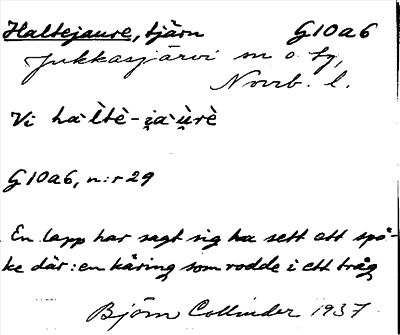 Haltejaure, tjärn G10a6
Jukkasjärvi sn o. tg,
Norrb. l.
Vi ha͔ltè-i̯a͔ùrè
G10a6, n:r 29
En lapp har sagt sig ha sett ett spö-
ke där: en käring som rodde i ett tråg
Björn Collinder 1937.